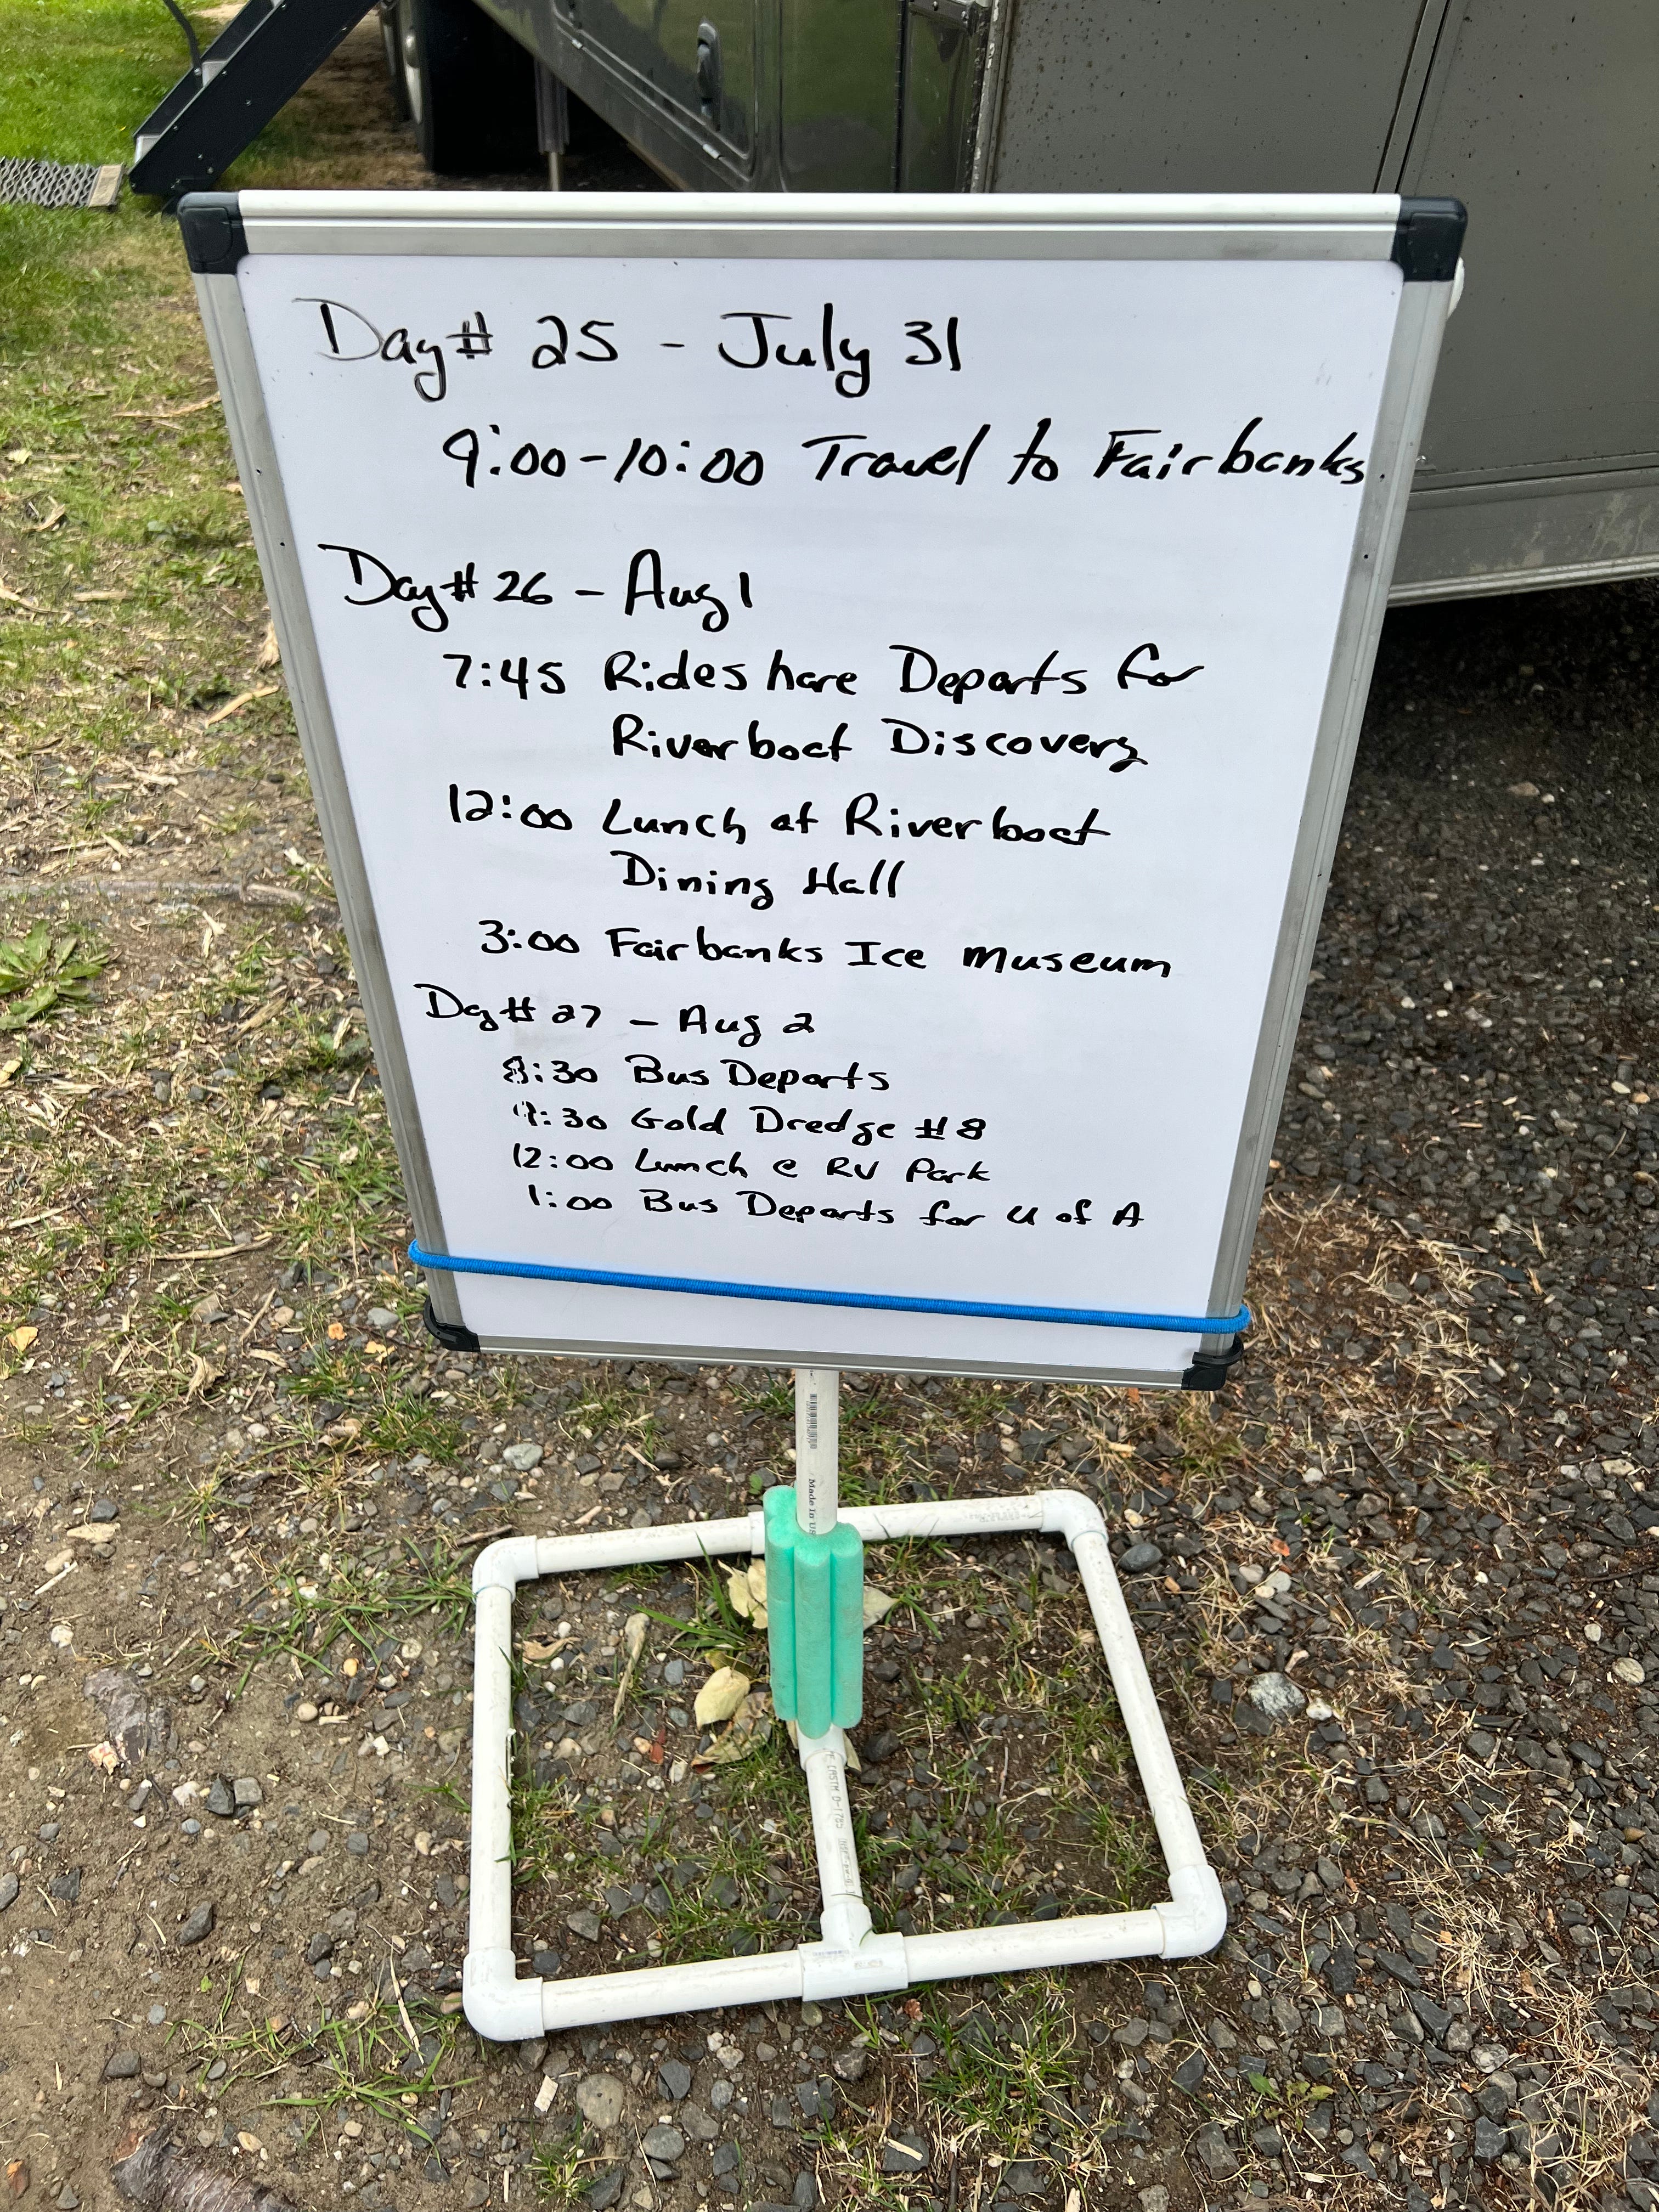 Day# 25 - July 31
9:00-10:00 Travel to Fairbanks
Day# 26 - Aug 1
7:45 Rideshare Departs for
Riverboat Discovery
12:00 Lunch at Riverboat
Dining Hall
3:00 Fairbanks Ice Museum
Day# 27 - Aug 2
8:30 Bus Departs
9:30 Gold Dredge #8
12:00 Lunch @ RV Park
1:00 Bus Departs for U of A
Made In US